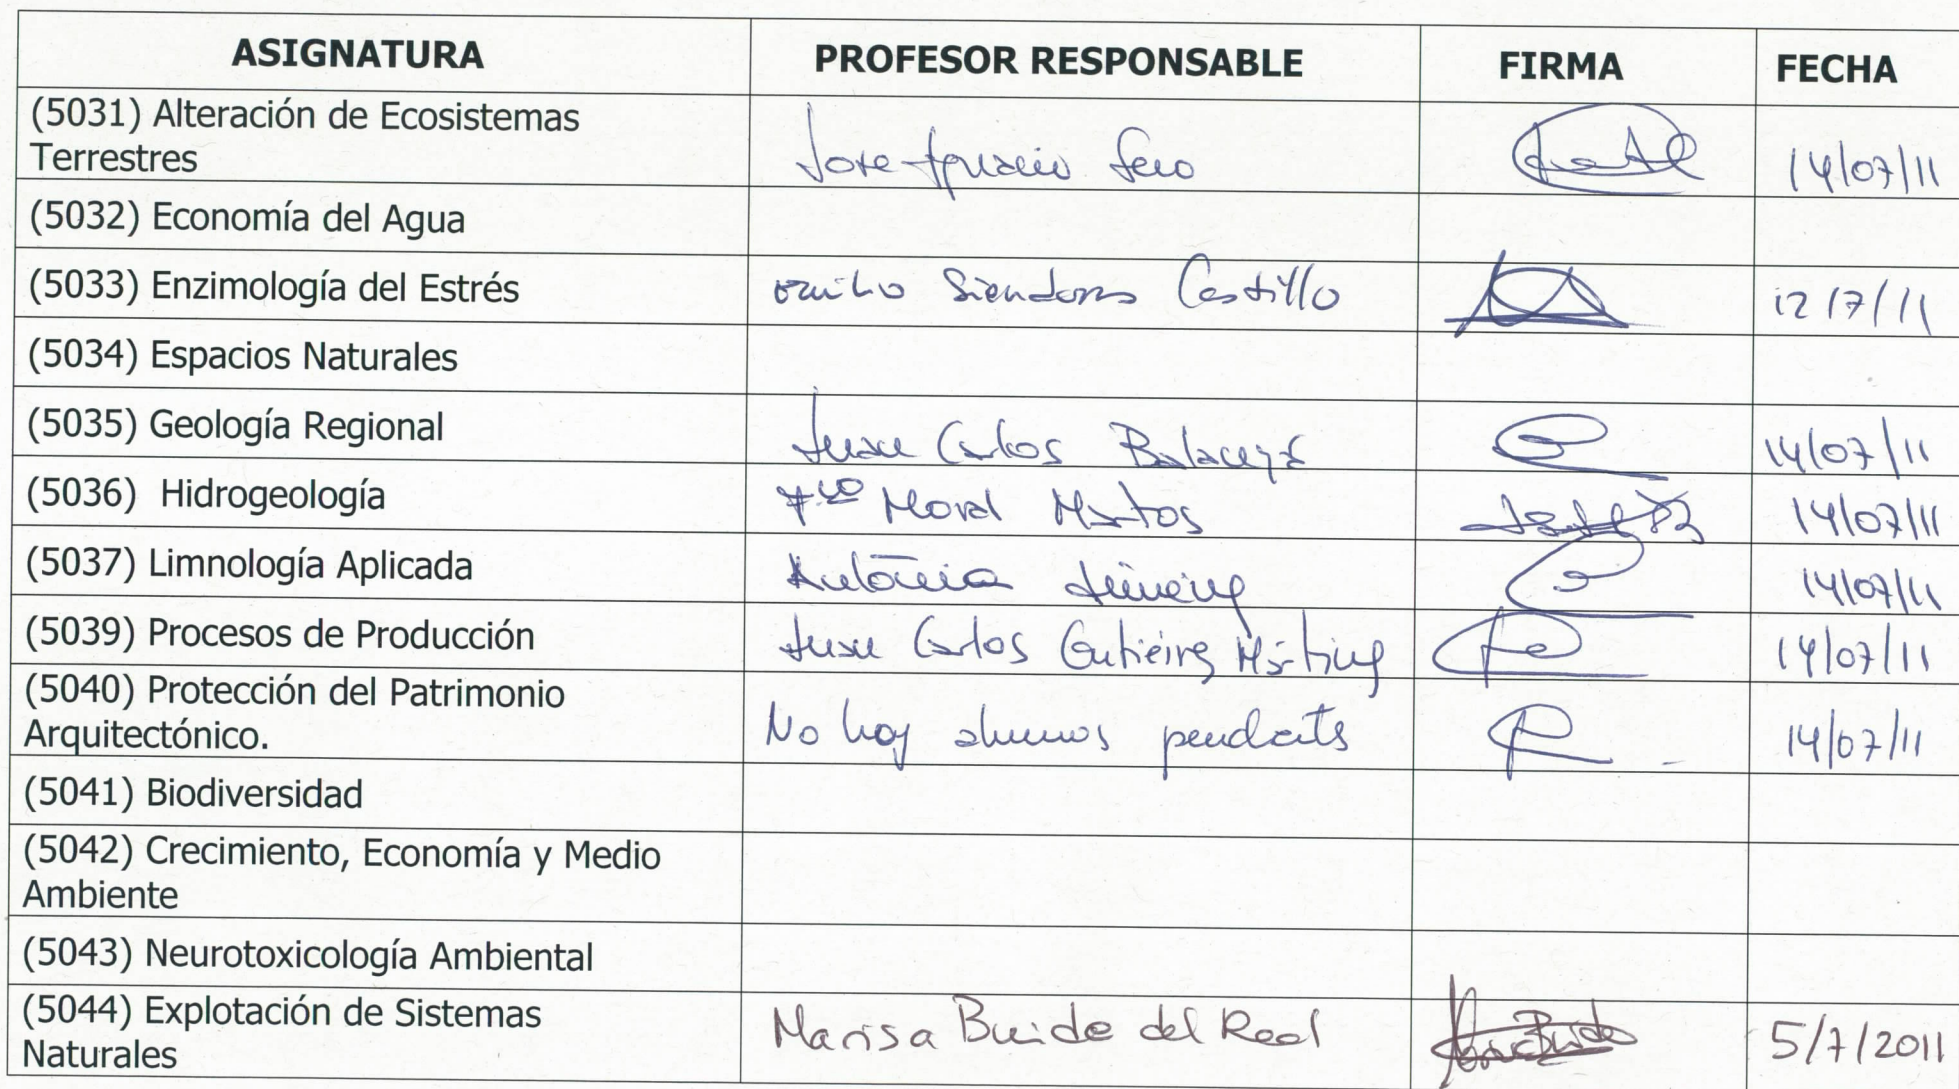 ASIGNATURA PROFESOR RESPONSABLE FIRMA FECHA
(5031) Alteración de Ecosistemas
Terrestres Jose Ignacio Seco 14/07/11
(5032) Economía del Agua
(5033) Enzimología del Estrés Emilio Siendones Castillo 12/7/11
(5034) Espacios Naturales
(5035) Geología Regional Juan Carlos Balanyá 14/07/11
(5036) Hidrogeología Fco Moral Martos 14/07/11
(5037) Limnología Aplicada Antonia Jiménez 14/07/11
(5039) Procesos de Producción Juan Carlos Gutiérrez Martínez 14/07/11
(5040) Protección del Patrimonio
Arquitectónico. No hay alumnos pendientes 14/07/11
(5041) Biodiversidad
(5042) Crecimiento, Economía y Medio
Ambiente
(5043) Neurotoxicología Ambiental
(5044) Explotación de Sistemas
Naturales Marisa Buide del Real 5/7/2011